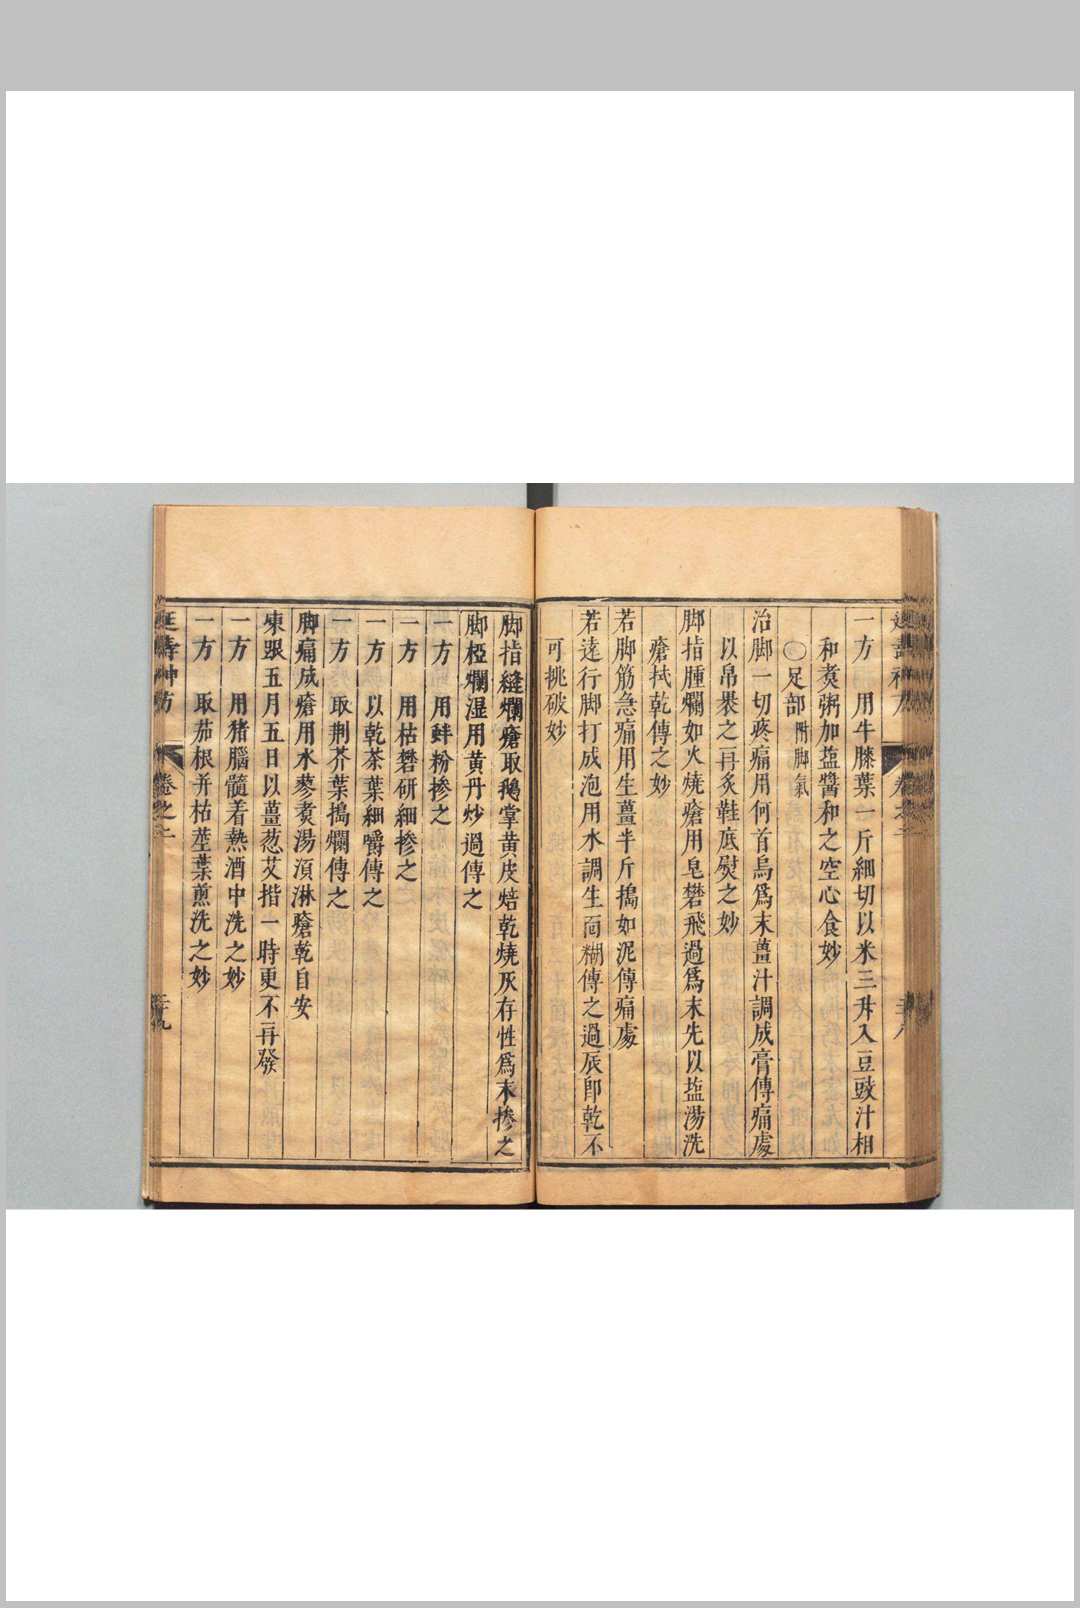 一方　用牛膝葉一斤細切以米三升入豆豉汁相
和煑粥加塩醬和之空心食妙
〇足部附脚氣
治脚一切疼痛用何首烏爲末薑汁調成膏傳痛處
以帛褁之再炙鞋底熨之妙
脚指腫爛如火燒瘡用皂礬飛過爲末先以塩湯洗
瘡拭乾傳之妙
若脚筋急痛用生薑半斤搗如泥傳痛處
若遠行脚打成泡用水調生面糊傳之過辰即乾不
可挑破妙
脚指縫爛瘡取鵝掌黄皮焙乾燒灰存性爲末摻之
脚椏爛湿用黄丹炒過傳之
一方　用蚌粉摻之
一方　用枯礬研細摻之
一方　以乾茶葉細嚼傳之
一方　取荆芥葉搗爛傳之
脚痛成瘡用水蓼煑湯湏淋瘡乾自安
凍跟五月五日以薑葱艾揩一時更不再發
一方　用猪腦髓着熱酒中洗之妙
一方　取茄根并枯莖葉煎洗之妙
延壽神方　卷之二　三十九